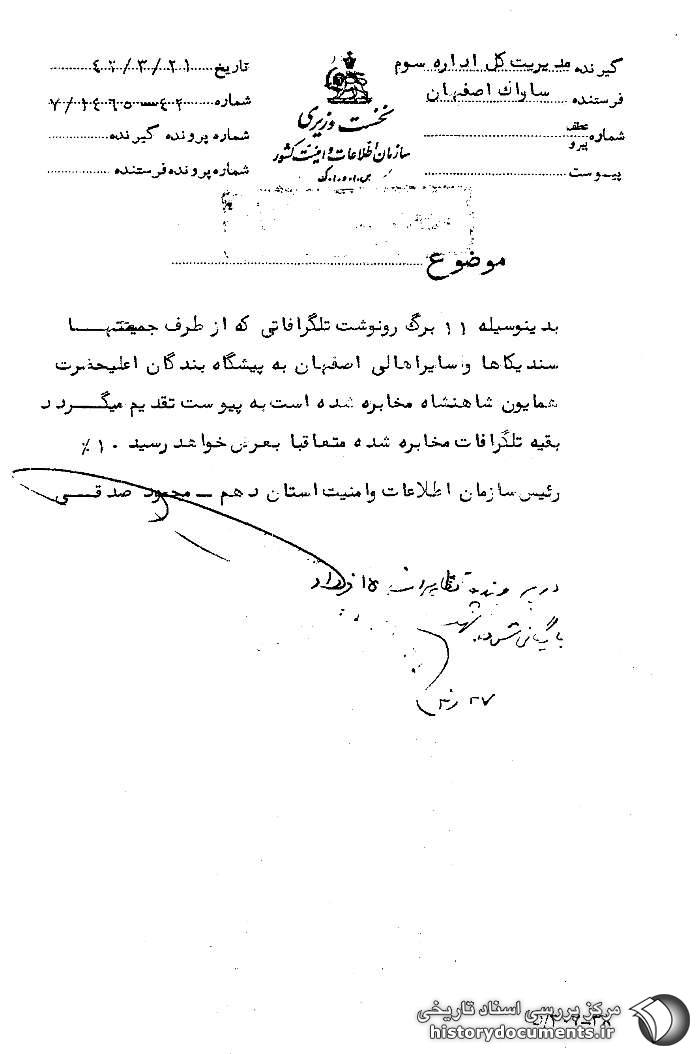 گیرنده مدیریت کل اداره سوم
فرستنده ساواک اصفهان
شماره عطف پیرو
پیوست
نخست وزیری
سازمان اطلاعات و امنیت کشور
س.ا.و.ا.ک
تاریخ ۴۲/۳/۲۱
شماره
شماره پرونده گیرنده
شماره پرونده فرستنده
موضوع
بدینوسیله ۱۱ برگ رونوشت تلگرافاتی که از طرف جمعیتها
سندیکاها و سایر اهالی اصفهان به پیشگاه بندگان اعلیحضرت
همایون شاهنشاه مخابره شده است به پیوست تقدیم میگردد
بقیه تلگرافات مخابره شده متعاقبا بعرض خواهد رسید ۱۰٪
رئیس سازمان اطلاعات وامنیت استان دهم ــ محمود صدقی
در پرونده تظاهرات ۱۵ خرداد
بایگانی شود
مرکز بررسی اسناد تاریخی
historydocuments.ir